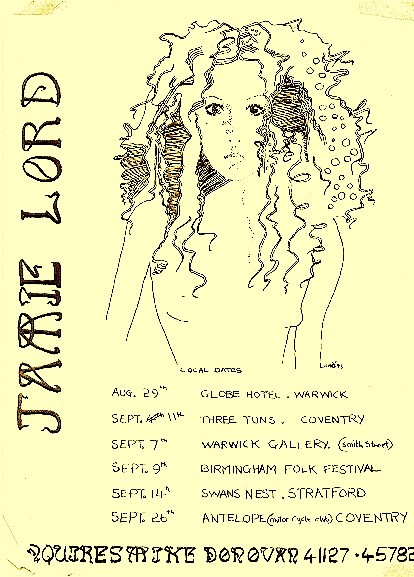 JAAIE LORD
LOCAL DATES
AUG. 29th GLOBE HOTEL. WARWICK
SEPT. 11th THREE TUNS. COVENTRY
SEPT. 7th WARWICK GALLERY. (smith street)
SEPT. 9th BIRMINGHAM FOLK FESTIVAL
SEPT. 14th SWANS NEST. STRATFORD
SEPT. 26th ANTELOPE (motor cycle club) COVENTRY
MIKE DONOVAN 41127 · 45782